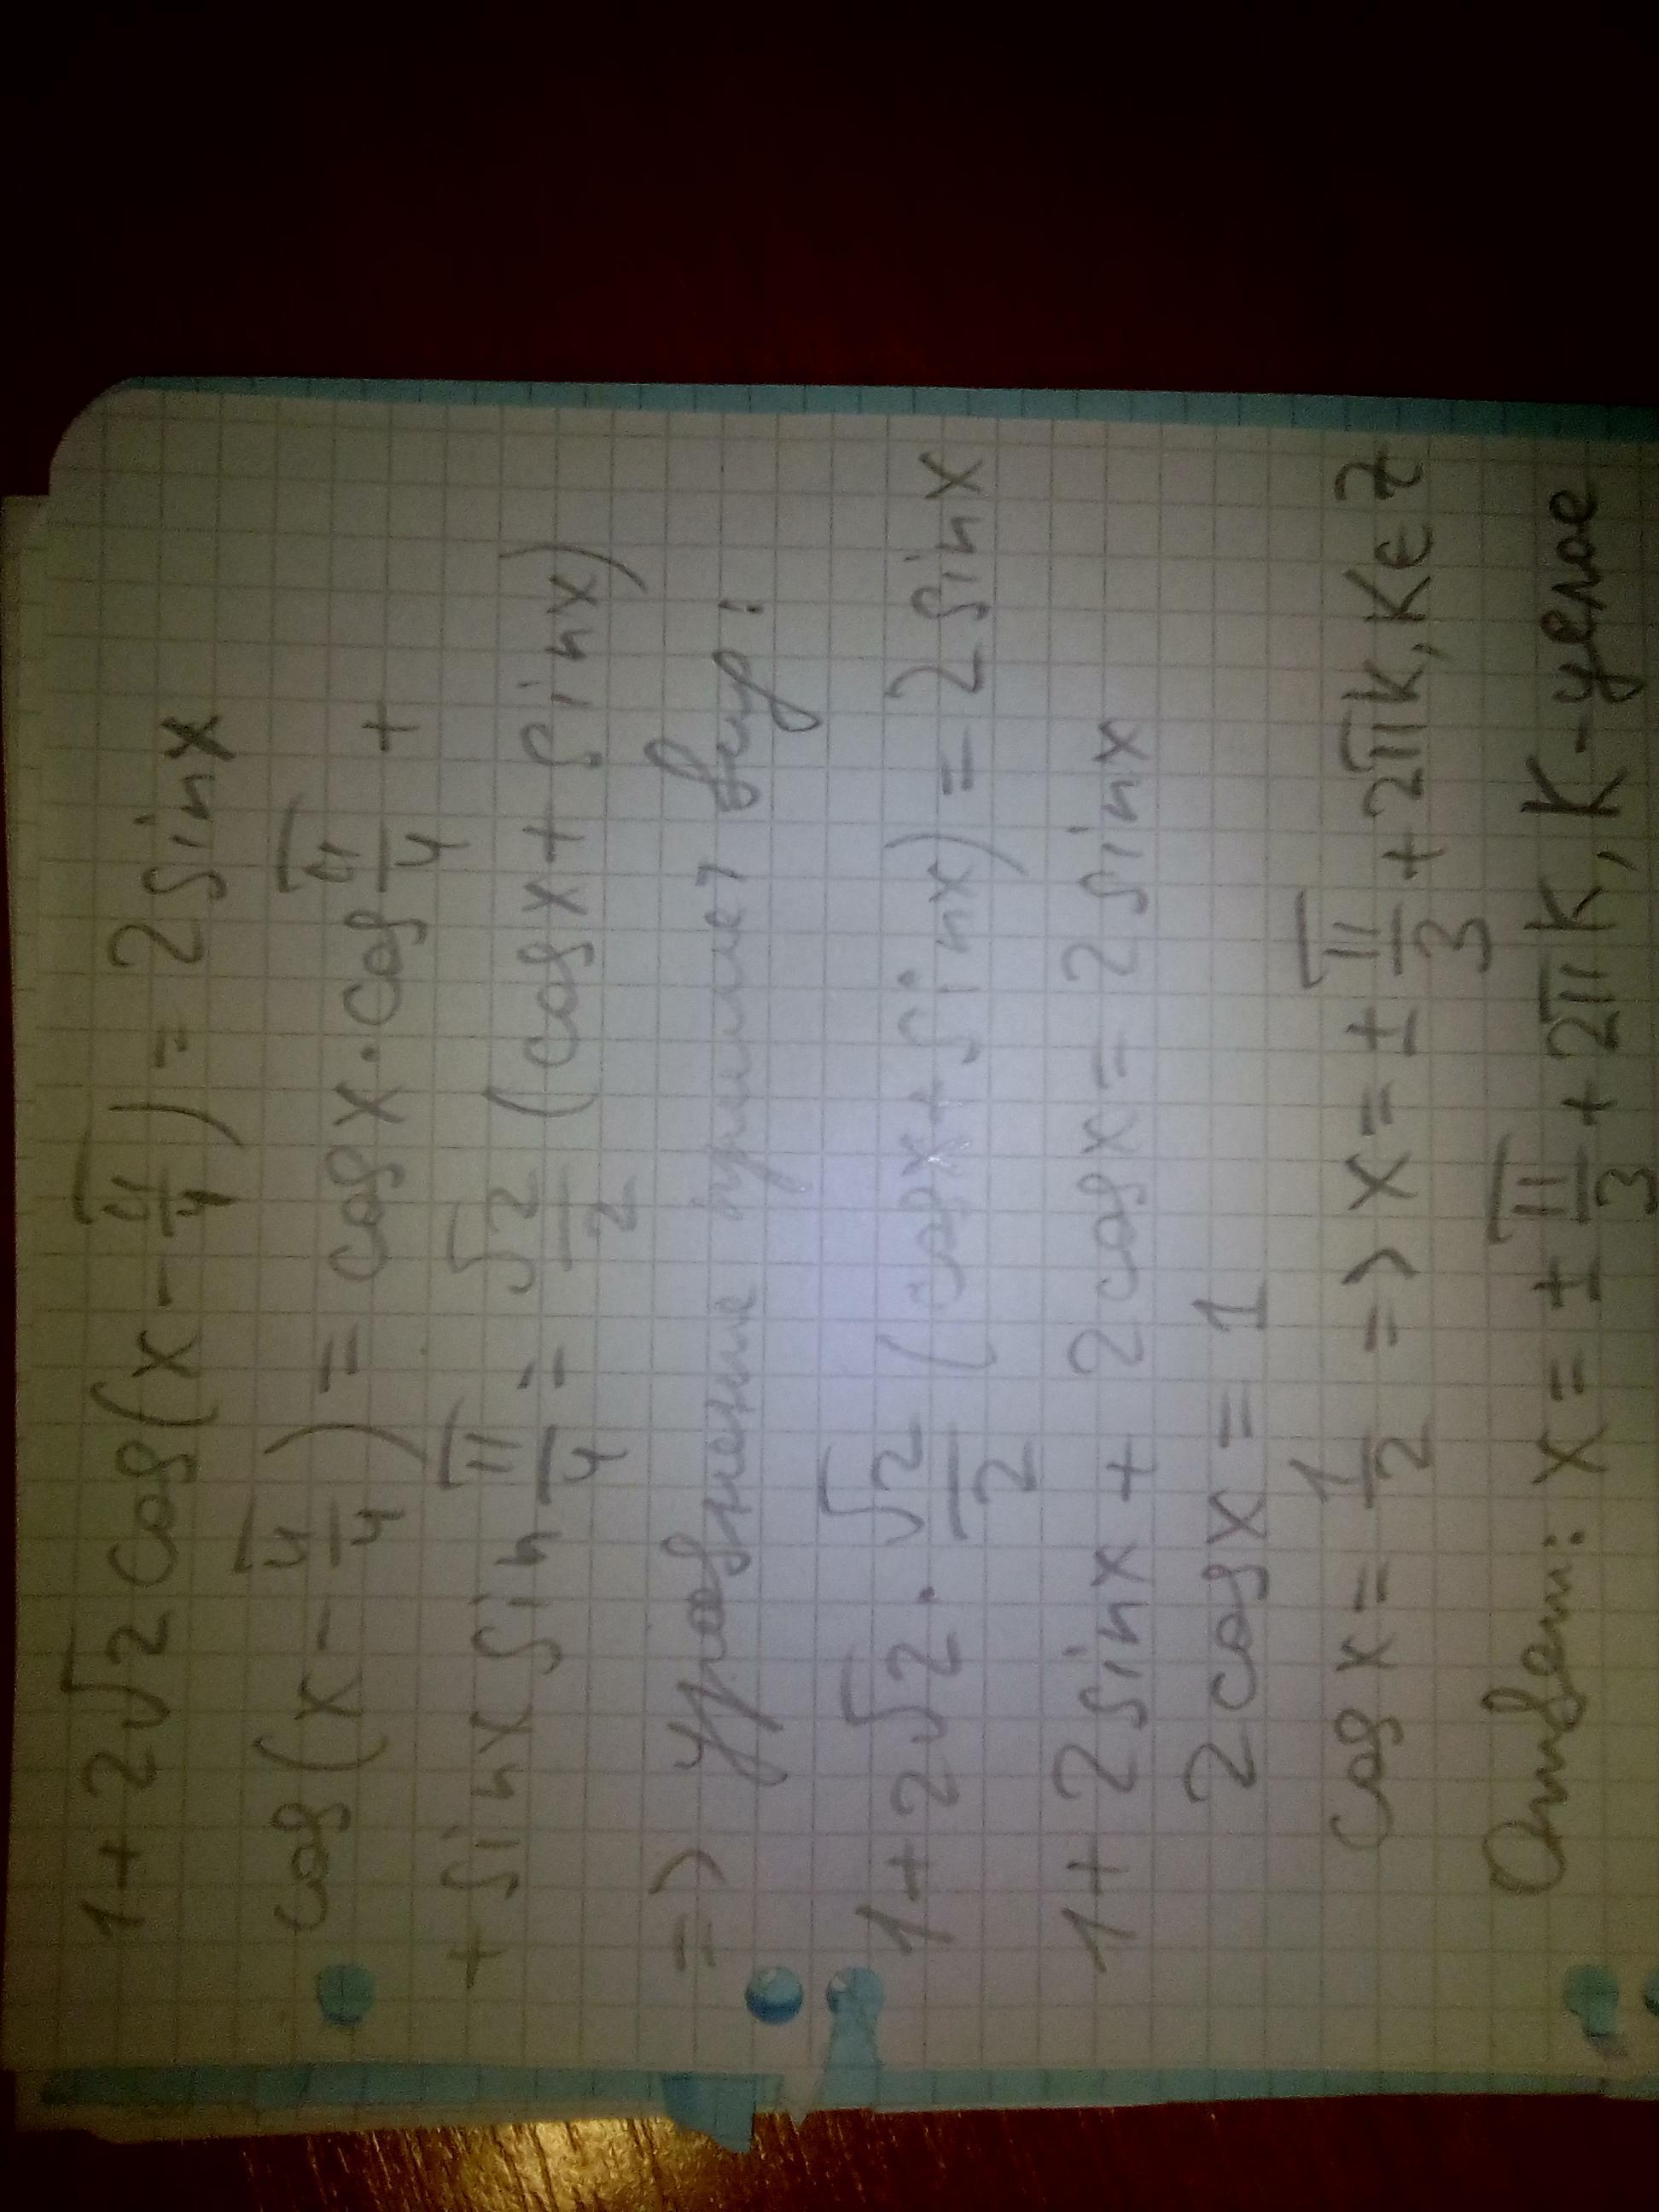 1+2√2 cos(x-π/4) = 2 sinx
cos(x-π/4) = cosx·cos π/4 +
+ sinx sin π/4 = √2/2 (cosx + sinx)
=> уравнение примет вид:
1+2√2·√2/2 (cosx+sinx) = 2 sinx
1+ 2 sinx + 2cosx = 2 sinx
2cosx = 1
cos x = 1/2 => x = ± π/3 + 2πk, k∈Z
Ответ: x = ± π/3 + 2πk, k-целое